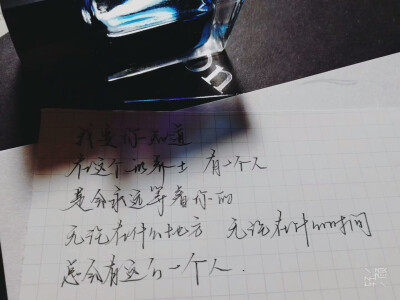 我要你知道
在这个世界上 有一个人
是会永远等着你的
无论在什么地方 无论在什么时间
总会有这么一个人.